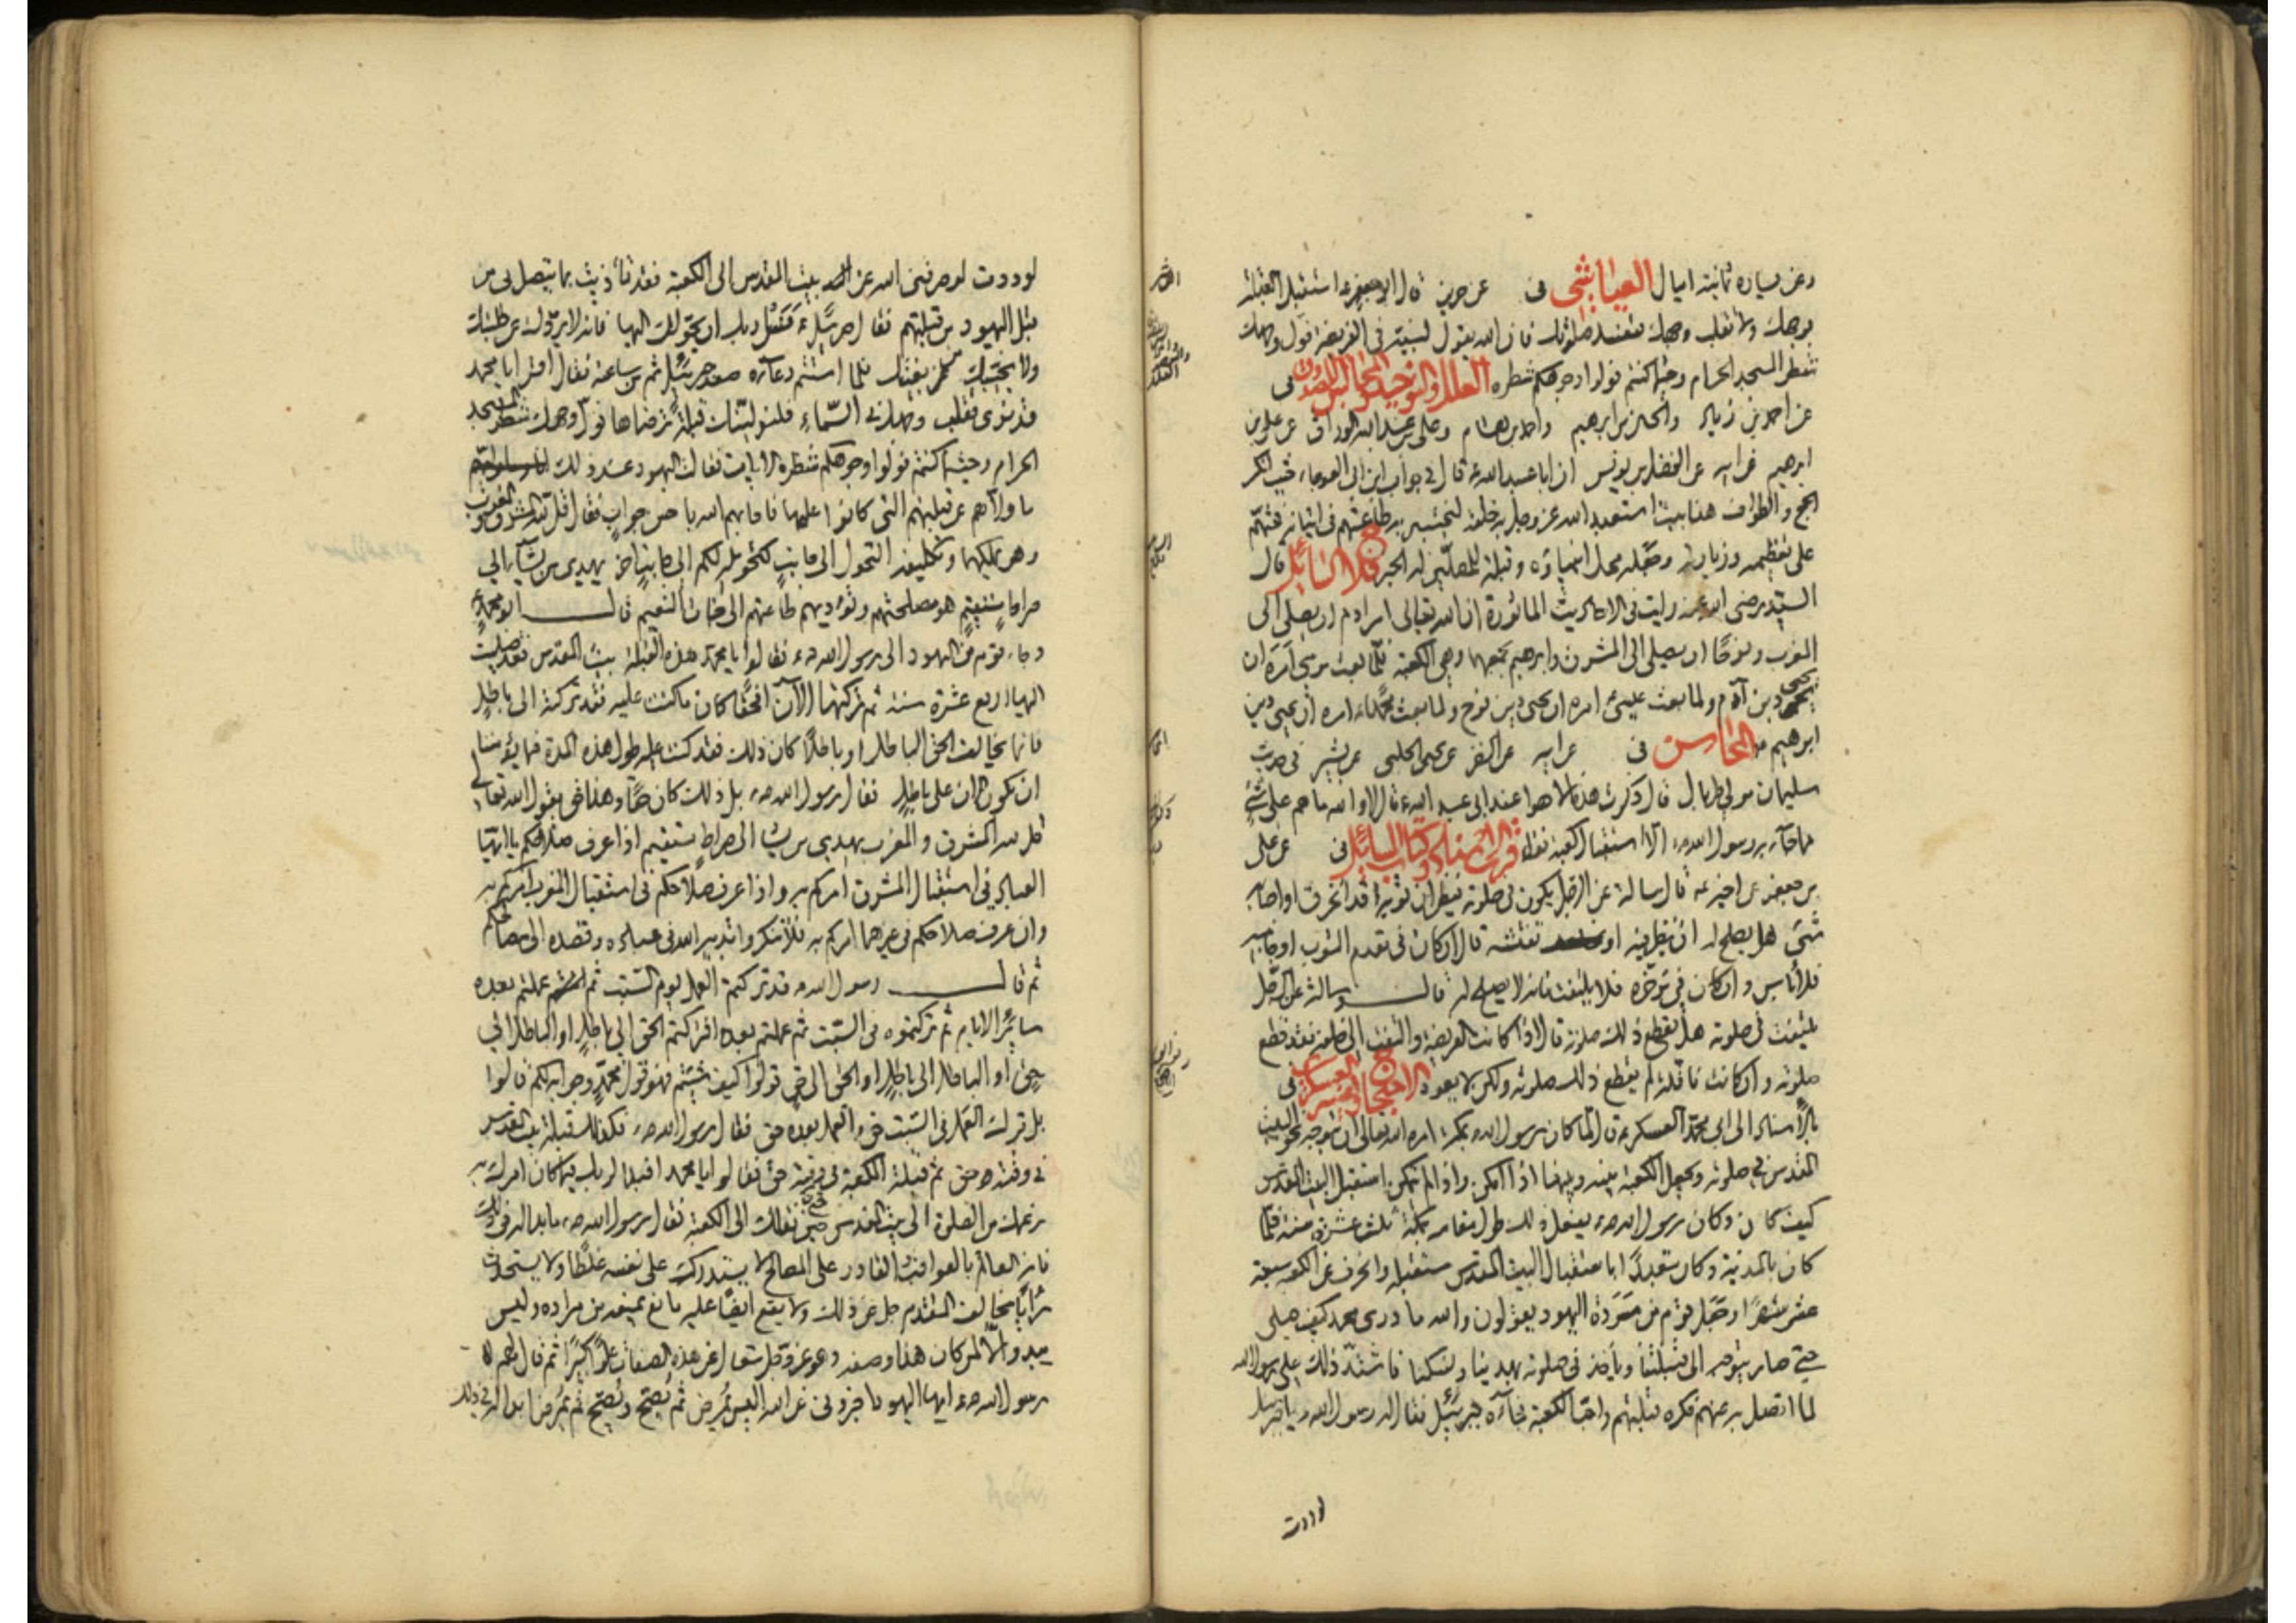 وعن يساره ثمانية اميال العياشى فى عن حريز قال ابو جعفر ع استقبل القبلة
بوجهك ولا تقلب وجهك فتفسد صلوتك فان الله يقول لنبيه فى الفريضة فول وجهك
شطر المسجد الحرام وحيث ما كنتم فولوا وجوهكم شطره العلل والتوحيد والمجالس للصدوق فى
عن احمد بن زياد والحسين بن ابرهيم واحمد بن هشام وعلى بن عبد الله الوراق عن على بن
ابرهيم عن ابيه عن الفضل بن يونس ان ابا عبد الله ع قال فى جواب ابن ابى العوجاء حيث انكر
الحج والطواف هذا بيت استعبد الله عز وجل به خلقه ليختبر به طاعتهم فى اتيانه فحثهم
على تعظيمه وزيارته وجعله محل انبيائه وقبلة للمصلين له الخبر فلاح السائل قال
السيد رضى الله عنه رايت فى الاحاديث الماثورة ان الله تعالى امر ادم ان يصلى الى
المغرب ونوحا ان يصلى الى المشرق وابرهيم يجمعهما وهى الكعبة فلما بعث موسى امره ان
يحيى دين آدم ولما بعث عيسى امره ان يحيى دين نوح ولما بعث محمدا ص امره ان يحيى دين
ابرهيم المحاسن فى عن ابيه عن النضر عن يحيى الحلبى عن بشير فى حديث
سليمان مولى طربال قال ذكرت هذه الاهوا عند ابى عبد الله ع قال لا والله ما هم على شئ
مما جاء به رسول الله ص الا استقبال الكعبة فقط قرب الاسناد وكتاب المسائل فى عن على
بن جعفر عن اخيه ع قال سالته عن الرجل يكون فى صلوته فيظن ان ثوبه قد انخرق او اصابه
شئ هل يصلح له ان ينظر فيه او يفتشه قال ان كان فى مقدم الثوب او جانبيه
فلا بأس وان كان فى مؤخره فلا يلتفت فانه لا يصلح له قال وسالته عن الرجل
يلتفت فى صلوته هل يقطع ذلك صلوته قال اذا كانت الفريضة والتفت الى خلفه فقد قطع
صلوته وان كانت نافلة لم يقطع ذلك صلوته ولكن لا يعود الاحتجاج وتفسير العسكرى فى
بالاسناد الى ابى محمد العسكرى ع قال لما كان رسول الله ص بمكة امره الله تعالى ان يتوجه نحو البيت
المقدس فى صلوته ويجعل الكعبة بينه وبينها اذا امكن واذا لم يتمكن استقبل البيت المقدس
كيف كان وكان رسول الله ص يفعل ذلك طول مقامه بمكة ثلث عشرة سنة فلما
كان بالمدينة وكان متعبدا باستقبال البيت المقدس استقبله وانحرف عن الكعبة سبعة
عشر شهرا وجعل قوم من مردة اليهود يقولون والله ما درى محمد كيف صلى
حتى صار يتوجه الى قبلتنا ويأخذ فى صلوته بهدينا ونسكنا فاشتد ذلك على رسول الله
لما اتصل به عنهم وكره قبلتهم واحب الكعبة فجاءه جبرئيل فقال له رسول الله ص يا جبرئيل
لوددت
لوددت لو صرفنى الله عن بيت المقدس الى الكعبة فقد تأذيت بما يتصل بى من
قبل اليهود من قبلتهم فقال جبرئيل ع فسئل ربك ان يحولك اليها فانه لا يردك عن طلبتك
ولا يخيبك من بغيتك فلما استتم دعآءه صعد جبرئيل ثم عاد من ساعته فقال اقرأ يا محمد
قد نرى تقلب وجهك فى السّماء فلنولينك قبلة ترضاها فول وجهك شطر المسجد
الحرام وحيث ما كنتم فولوا وجوهكم شطره الايات فقالت اليهود عند ذلك
ما ولاهم عن قبلتهم التى كانوا عليها فاجابهم الله باحسن جواب فقال قل لله المشرق والمغرب
وهو يملكهما وتكليفه التحول الى جانب كتحويله لكم الى جانب اخر يهدى من يشآء الى
صراط مستقيم هو مصلحتهم وتؤديهم طاعتهم الى جنات النعيم قال ابو محمد ع
وجاء قوم من اليهود الى رسول الله ص فقالوا يا محمد هذه القبلة بيت المقدس قد صليت
اليها اربع عشرة سنة ثم تركتها الآن افحقا كان ما كنت عليه فقد تركته الى باطل
فانما يخالف الحق الباطل او باطلا كان ذلك فقد كنت عليه طول هذه المدة فما يؤمننا
ان تكون الان على باطل فقال رسول الله ص بل ذلك كان حقا وهذا حق يقول الله تعالى
قل لله المشرق والمغرب يهدى من يشا الى صراط مستقيم اذا عرف صلاحكم يا ايها
العباد فى استقبال المشرق امركم به واذا عرف صلاحكم فى استقبال المغرب امركم به
وان عرف صلاحكم فى غيرهما امركم به فلا تنكروا تدبير الله فى عباده وقصده الى مصالحكم
ثم قال رسول الله ص قد تركتم العمل يوم السبت ثم عملتم بعده
سائر الايام ثم تركتموه فى السبت ثم عملتم بعده افتركتم الحق الى باطل او الباطل الى
حق او الباطل الى باطل او الحق الى حق قولوا كيف شئتم فهو قول محمد وجوابه لكم قالوا
بل ترك العمل فى السبت حق والعمل بعده حق فقال رسول الله ص فكذلك قبلة بيت المقدس
فى وقته حق ثم قبلة الكعبة فى وقته حق فقالوا يا محمد افبدا لربك فيما كان امرك به
بزعمك من الصلوة الى بيت المقدس حين نقلك الى الكعبة فقال رسول الله ص ما بدا له فى ذلك
فانه العالم بالعواقب القادر على المصالح لا يستدرك على نفسه غلطا ولا يستحدث
رأيا بخالف المتقدم جل عن ذلك ولا يقع ايضا عليه مانع يمنعه من مراده وليس
يبدو الا لمن كان هذا وصفه وهو عز وجل متعال عن هذه الصفات علوا كبيرا ثم قال لهم
رسول الله ص ايها اليهود اخبرونى عن الله اليس يمرض ثم يصح ويصح ثم يمرض ابدا له فى ذلك